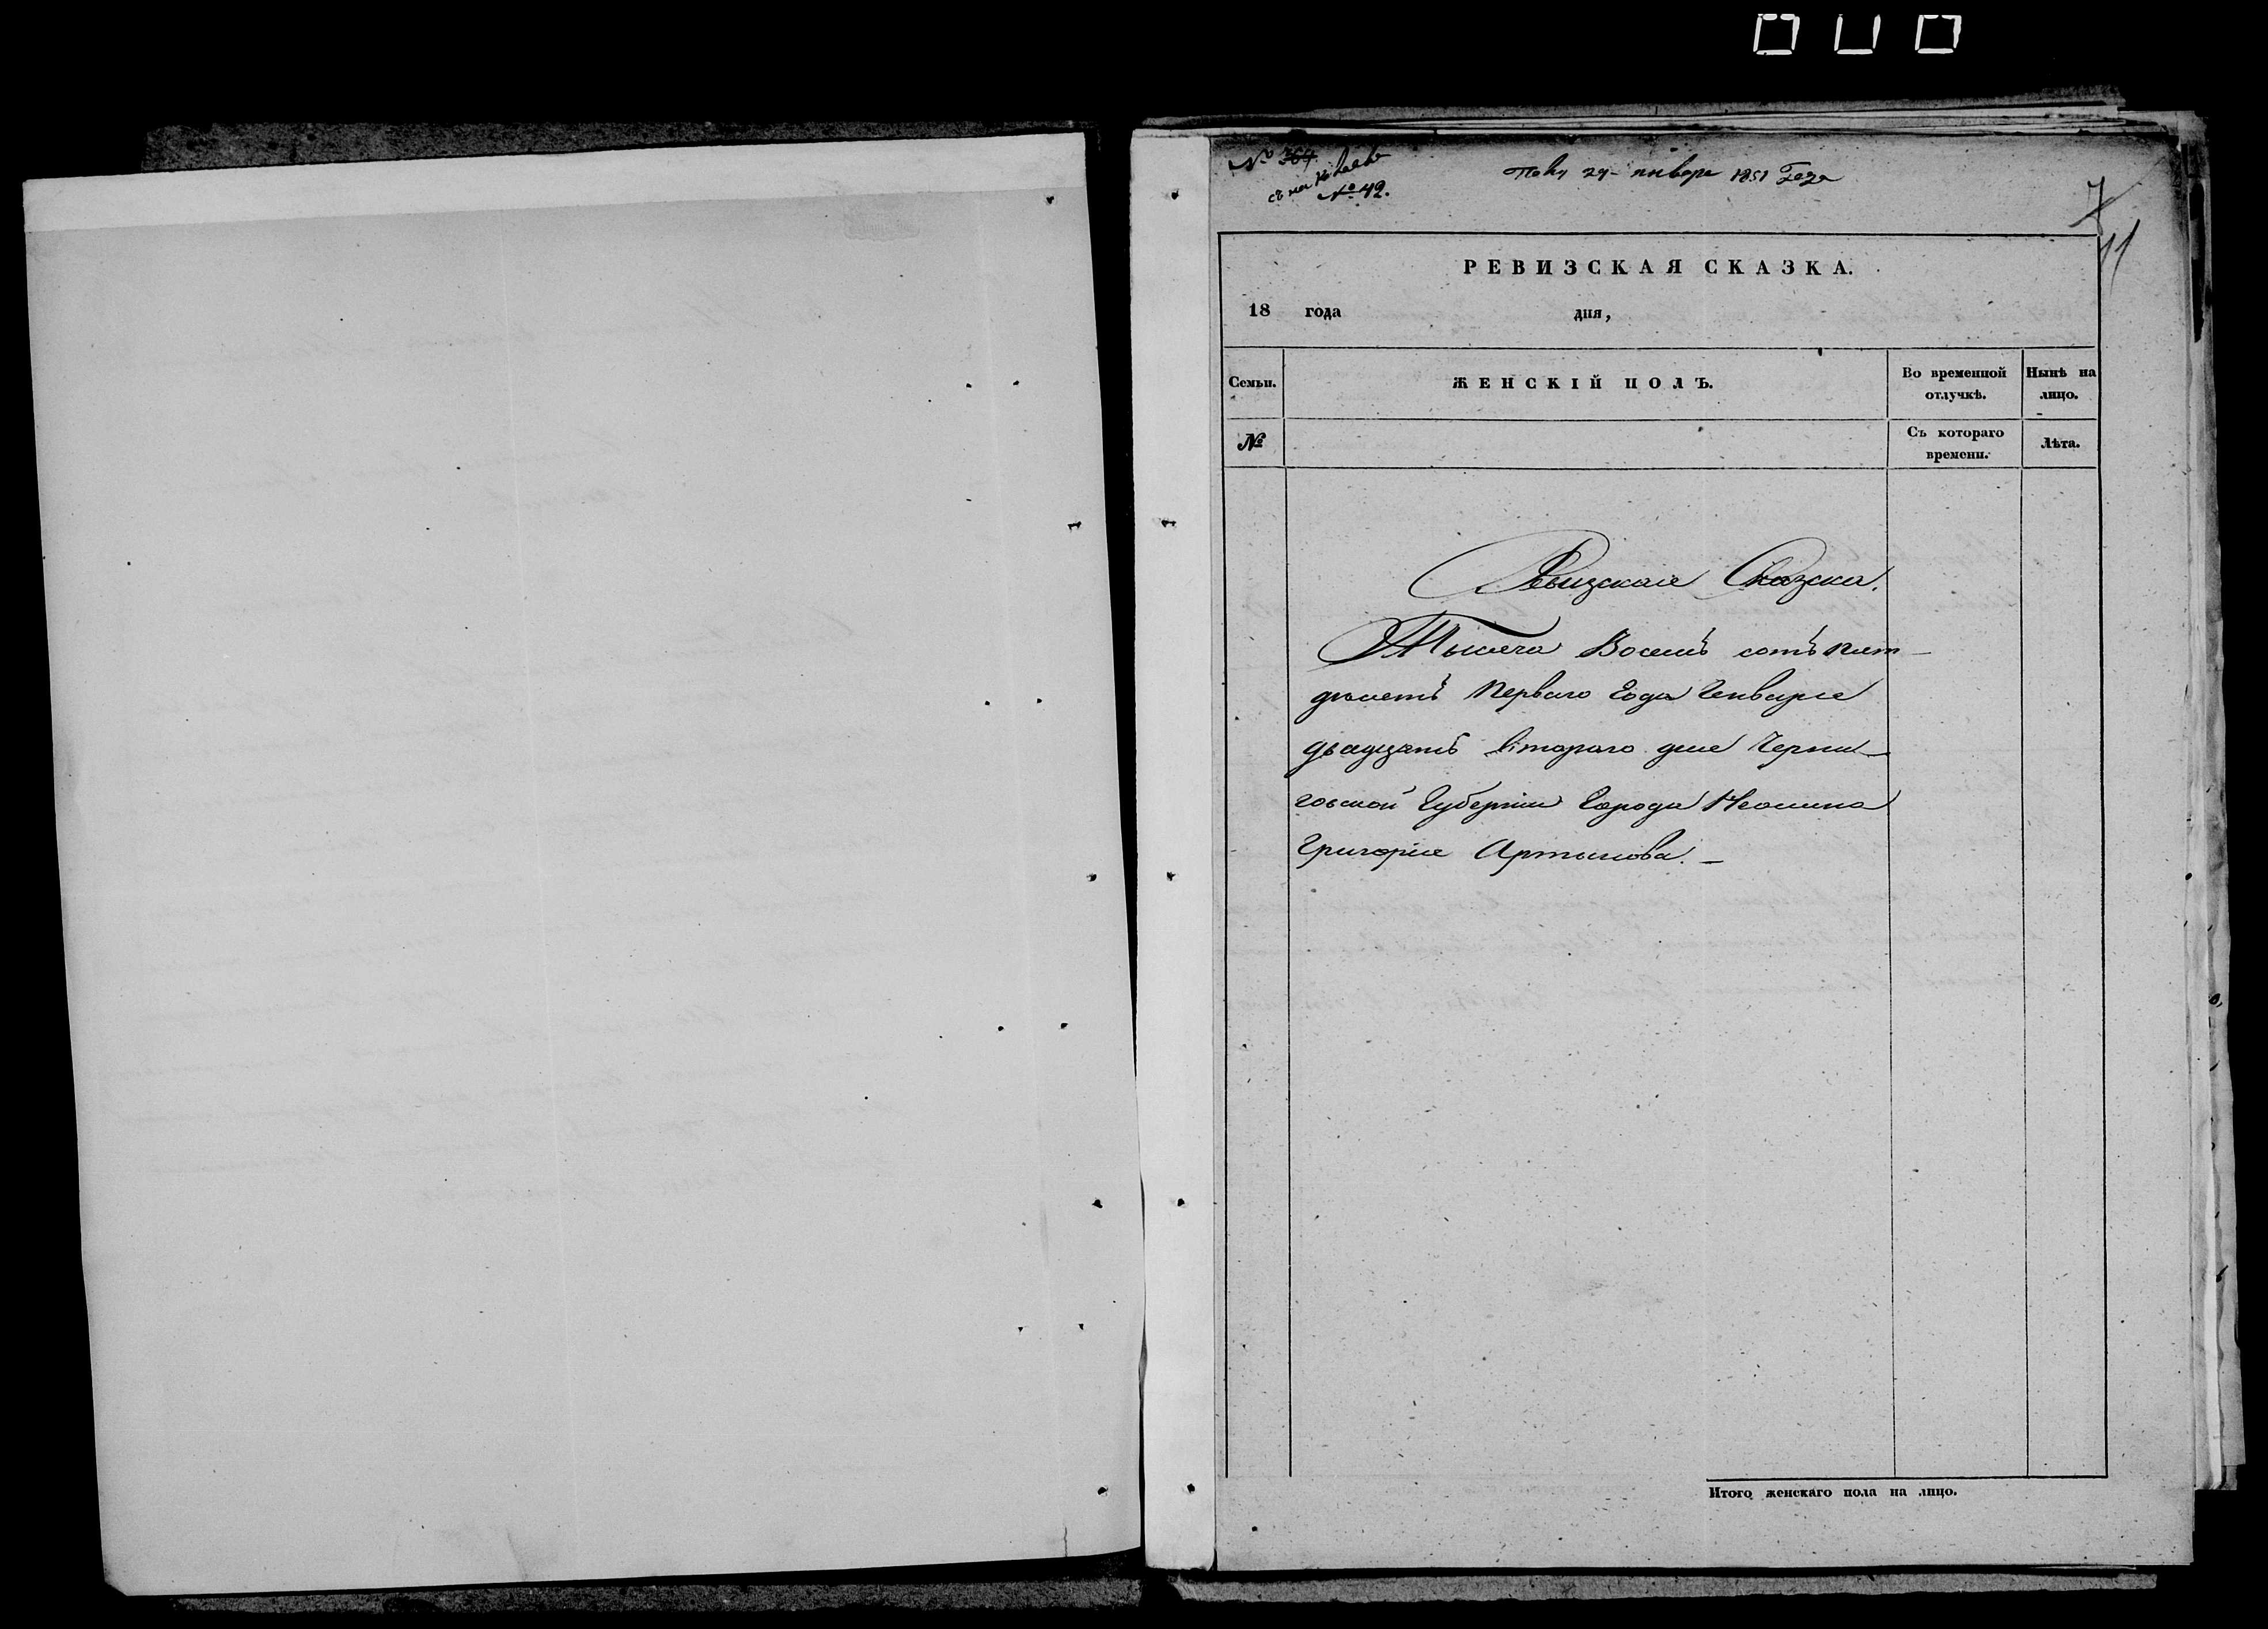 № 364
№ 42.
24 января 1851 Года
7
11
РЕВИЗСКАЯ СКАЗКА.
18 года дня,
Семьи. ЖЕНСКІЙ ПОЛЪ. Во временной отлучкѣ. Нынѣ на лицо.
№ Съ котораго времени. Лѣта.
Ревизская Сказка.
Тысяча Восемь сотъ пят-
десятъ Перваго Года Генваря
двадцать втораго дня Черни-
говской Губерніи Города
Григорія Артынова. —
Итого женскаго пола на лицо.